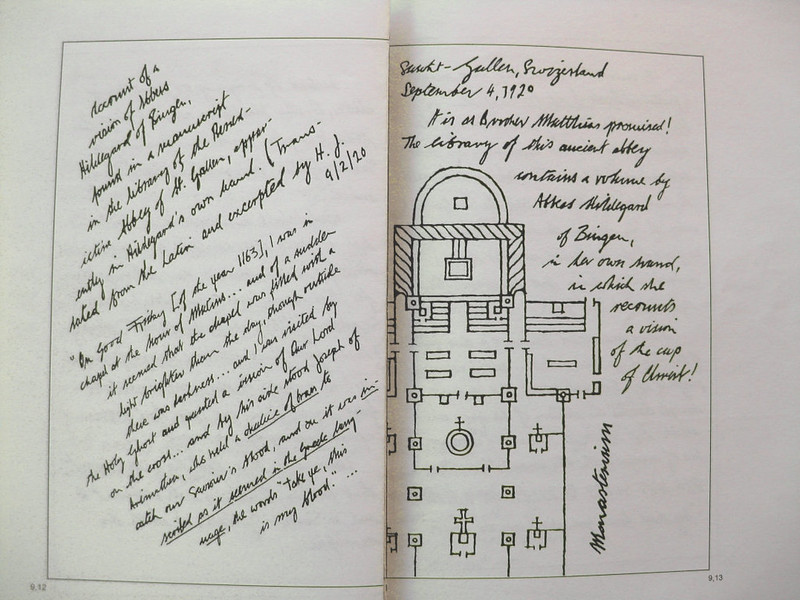 Account of a
vision of Abbess
Hildegard of Bingen,
found in a manuscript
in the library of the Bened-
ictine Abbey of St. Gallen, appar-
ently in Hildegard's own hand. (Trans-
lated from the Latin and excerpted by H. J.
9/2/20
"On Good Friday [of the year 1163], I was in
chapel at the hour of Matins... and of a sudden
it seemed that the chapel was filled with a
light brighter than the day, though outside
there was darkness... and I was visited by
the Holy Ghost and granted a vision of Our Lord
on the cross... and by his side stood Joseph of
Arimathea, who held a chalice of brass to
catch our Saviour's blood, and on it was in-
scribed as it seemed in the Greek lang-
uage, the words "Take ye, this
is my blood." ...
9,12
Sankt-Gallen, Switzerland
September 4, 1920
It is as Brother Matthias promised!
The library of this ancient abbey
contains a volume by
Abbess Hildegard
of Bingen,
in her own hand,
in which she
recounts
a vision
of the cup
of Christ!
Monasterium
9,13